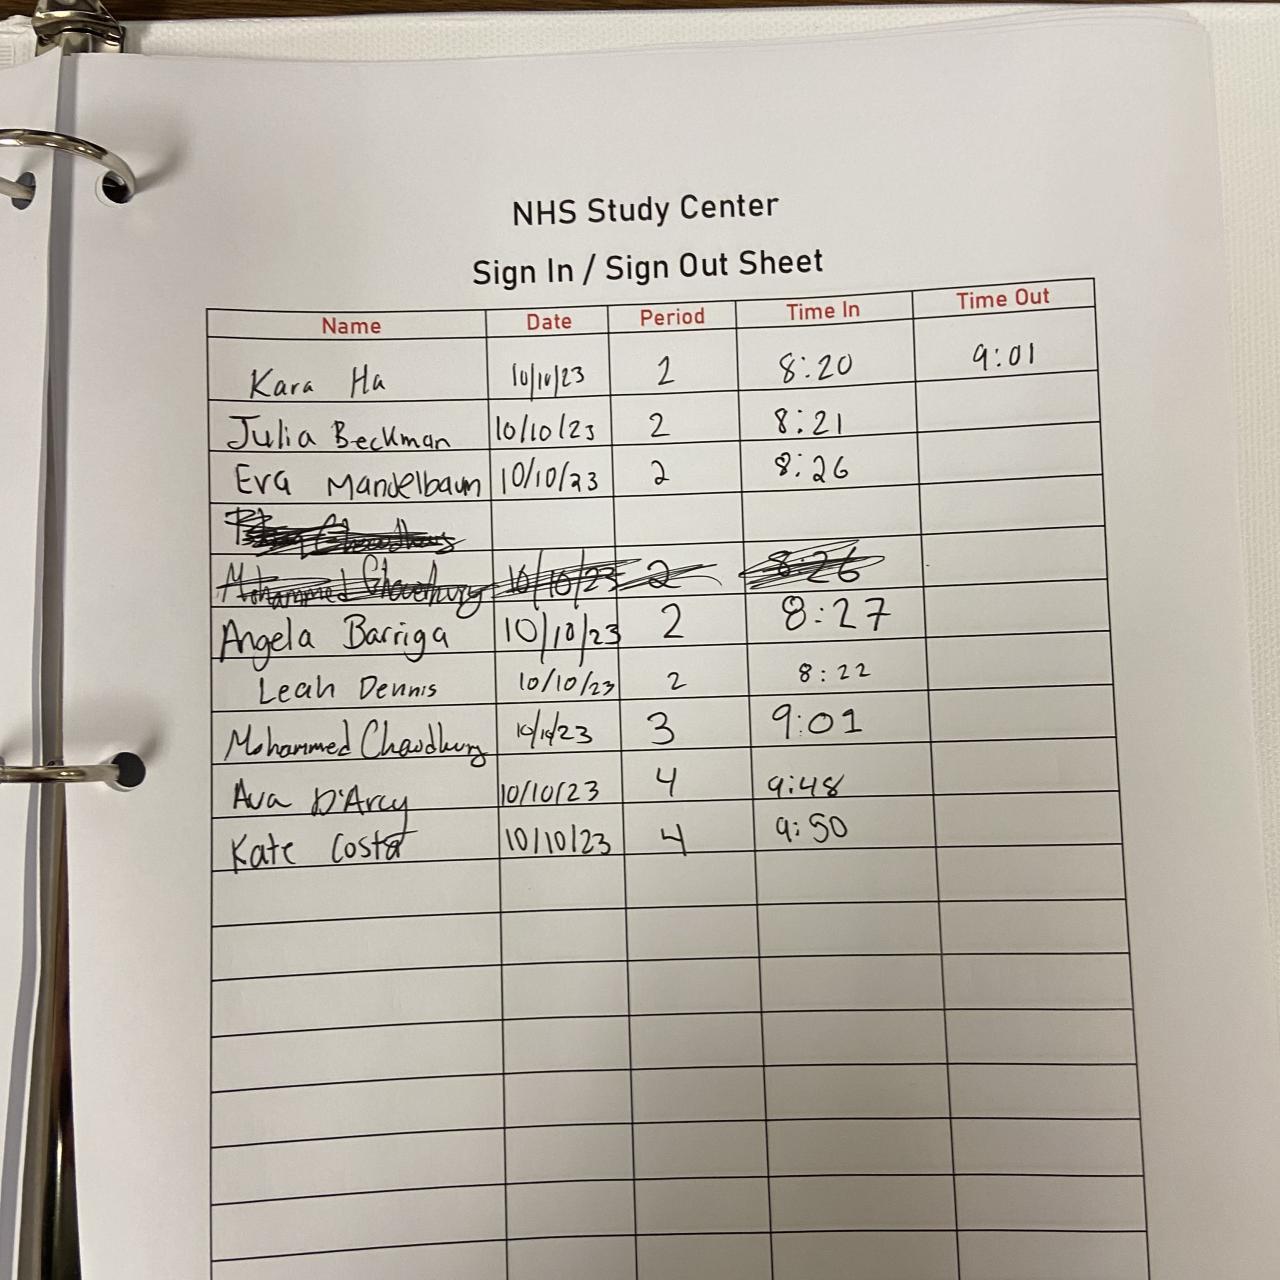 NHS Study Center
Sign In / Sign Out Sheet
Name Date Period Time In Time Out
Kara Ha 10/10/23 2 8:20 9:01
Julia Beckman 10/10/23 2 8:21
Eva Mandelbaum 10/10/23 2 8:26
Chowdhury
Mohammed Chowdhury 10/10/23 2 8:26
Angela Barriga 10/10/23 2 8:27
Leah Dennis 10/10/23 2 8:22
Mohammed Chowdhury 10/10/23 3 9:01
Ava D'Arcy 10/10/23 4 9:48
Kate Costa 10/10/23 4 9:50